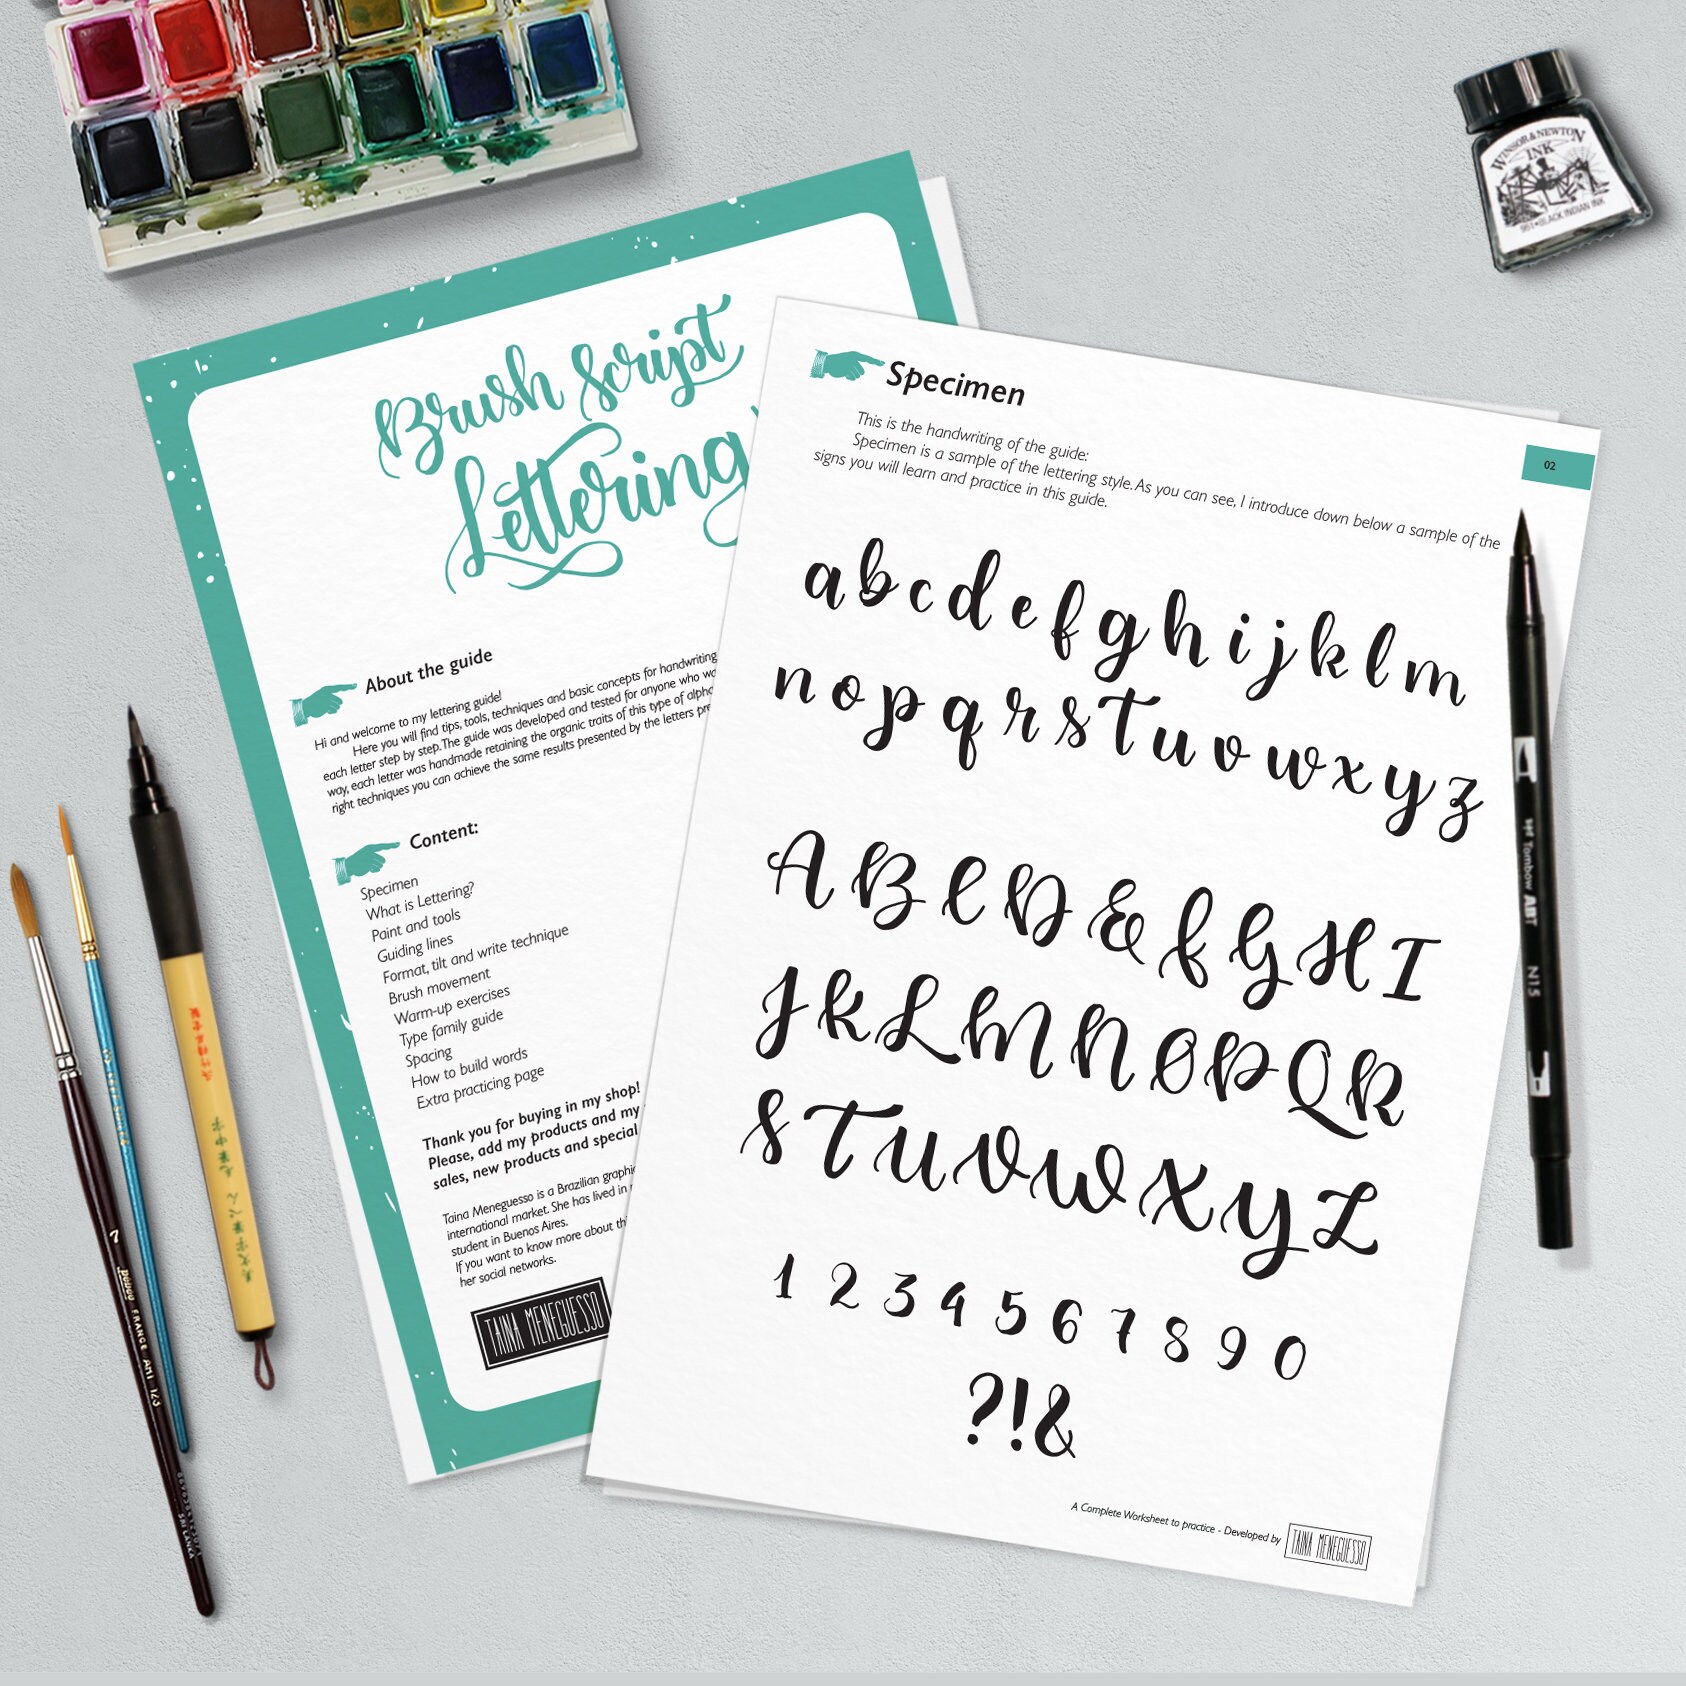 Brush Script
Lettering
About the guide
Hi and welcome to my lettering guide!
Here you will find tips, tools, techniques and basic concepts for handwriting
each letter step by step. The guide was developed and tested for anyone who
way, each letter was handmade retaining the organic traits of this type of
right techniques you can achieve the same results presented by the letters
Content:
Specimen
What is Lettering?
Paint and tools
Guiding lines
Format, tilt and write technique
Brush movement
Warm-up exercises
Type family guide
Spacing
How to build words
Extra practicing page
Thank you for buying in my shop!
Please, add my products and my
sales, new products and special
Taina Meneguesso is a Brazilian
international market. She has lived in
student in Buenos Aires.
If you want to know more about
her social networks.
TAINA MENEGUESSO
Specimen
This is the handwriting of the guide:
Specimen is a sample of the lettering style. As you can see, I introduce down below a sample of the
signs you will learn and practice in this guide.
02
a b c d e f g h i j k l m
n o p q r s t u v w x y z
A B C D E F G H I
J K L M N O P Q R
S T U V W X Y Z
1 2 3 4 5 6 7 8 9 0
?!&
A Complete Worksheet to practice - Developed by
TAINA MENEGUESSO
WINSOR & NEWTON
INK
951 • BLACK INDIAN INK
Tombow ABT
N15
7
pébéo FRANCE Art 123
SRI LANKA